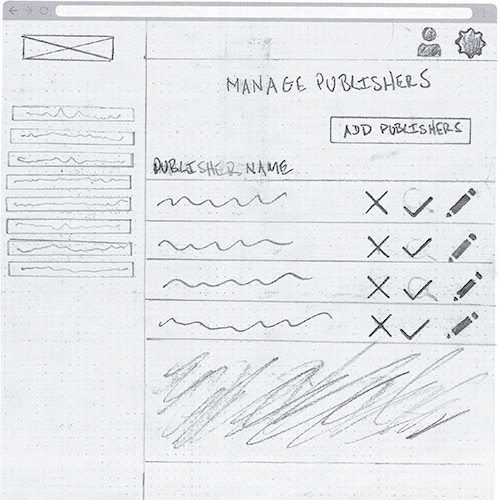 MANAGE PUBLISHERS
ADD PUBLISHERS
PUBLISHER NAME